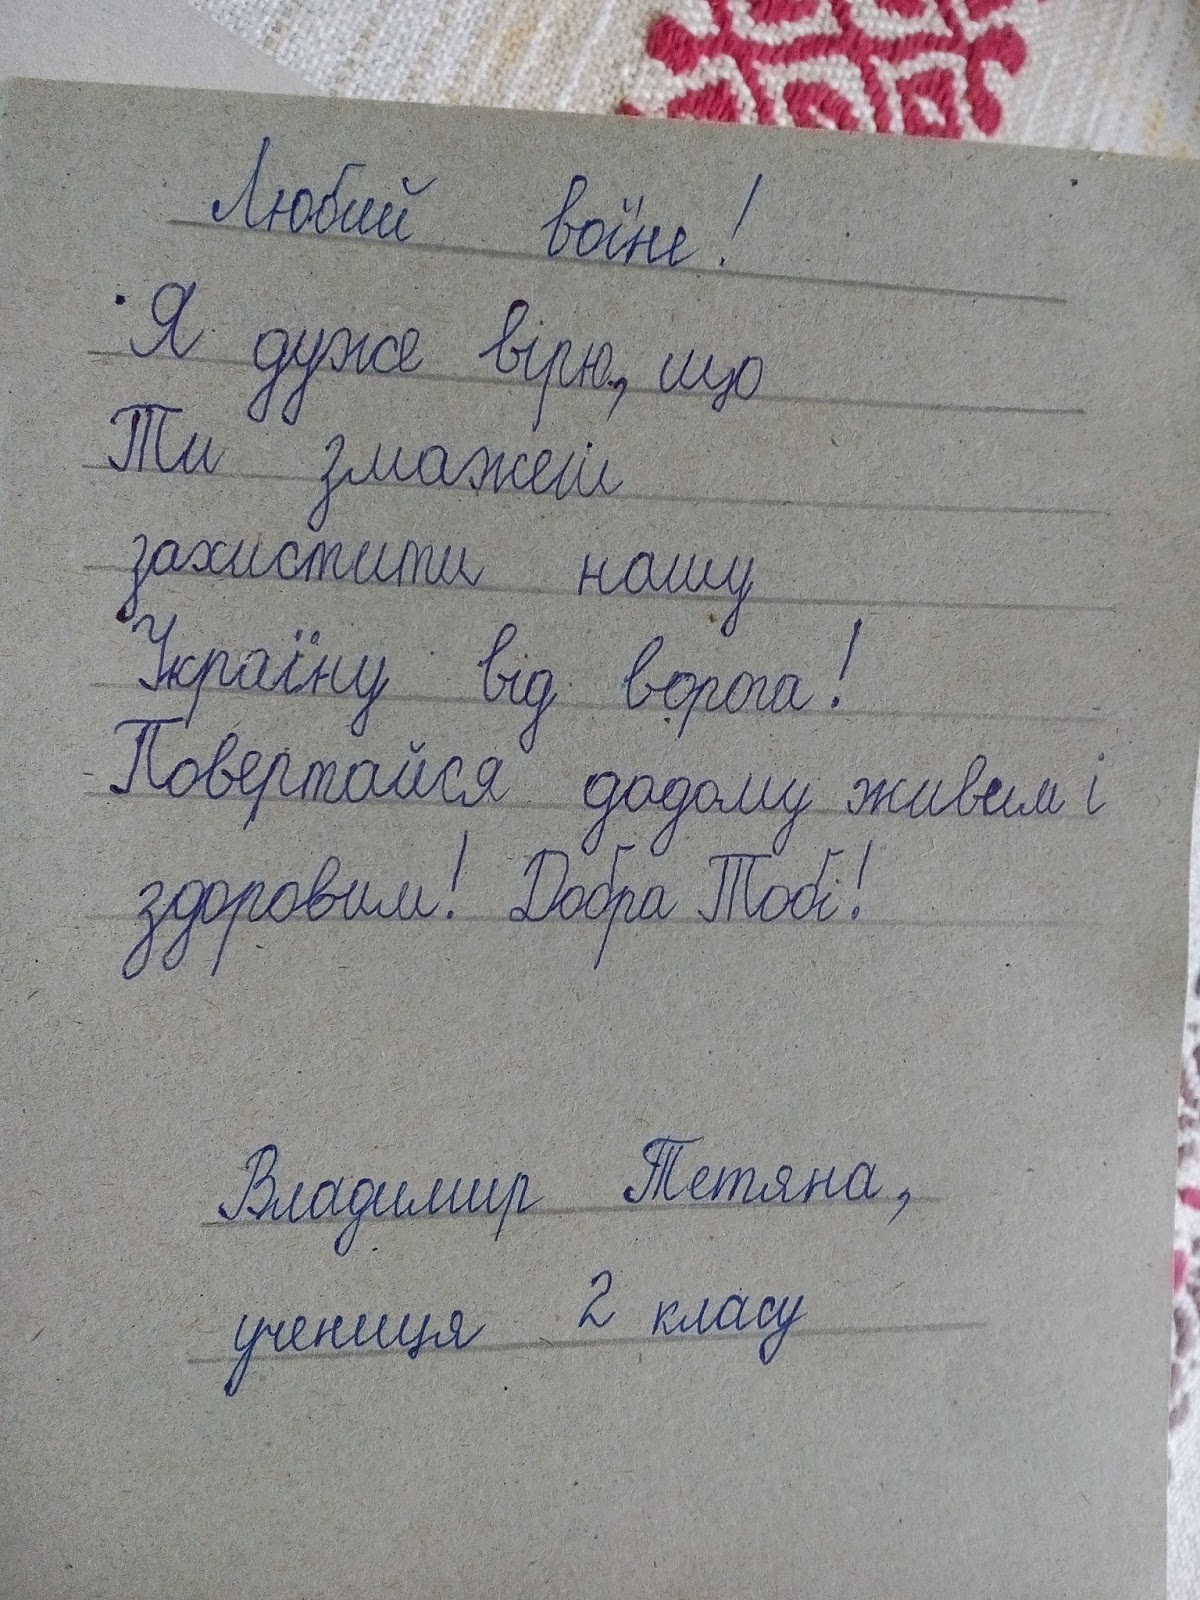 Любий воїне!
Я дуже вірю, що
Ти зможеш
захистити нашу
Україну від ворога!
Повертайся додому живим і
здоровим! Добра Тобі!
Владимир Тетяна,
учениця 2 класу